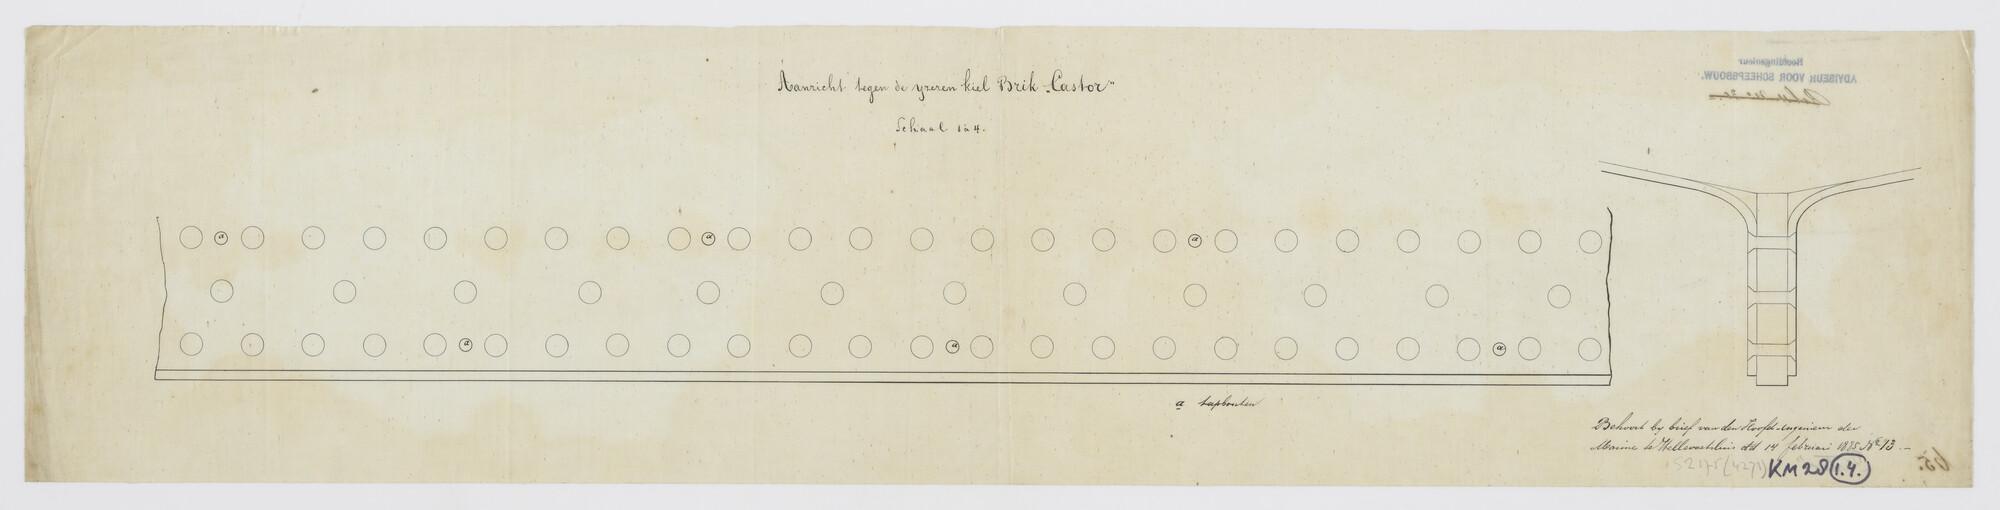 Aanzicht tegen de yzeren kiel Brik „Castor”
Schaal 1 à 4.
Hoofdingenieur
ADVISEUR VOOR SCHEEPSBOUW.
a
a
a
a
a
a
a tapbouten
Behoort by brief van den Hoofd-Ingenieur der
Marine te Hellevoetsluis dd 14 februari 1875 No 13.—
S2175(4271) KM 28 (1.4.)
65.